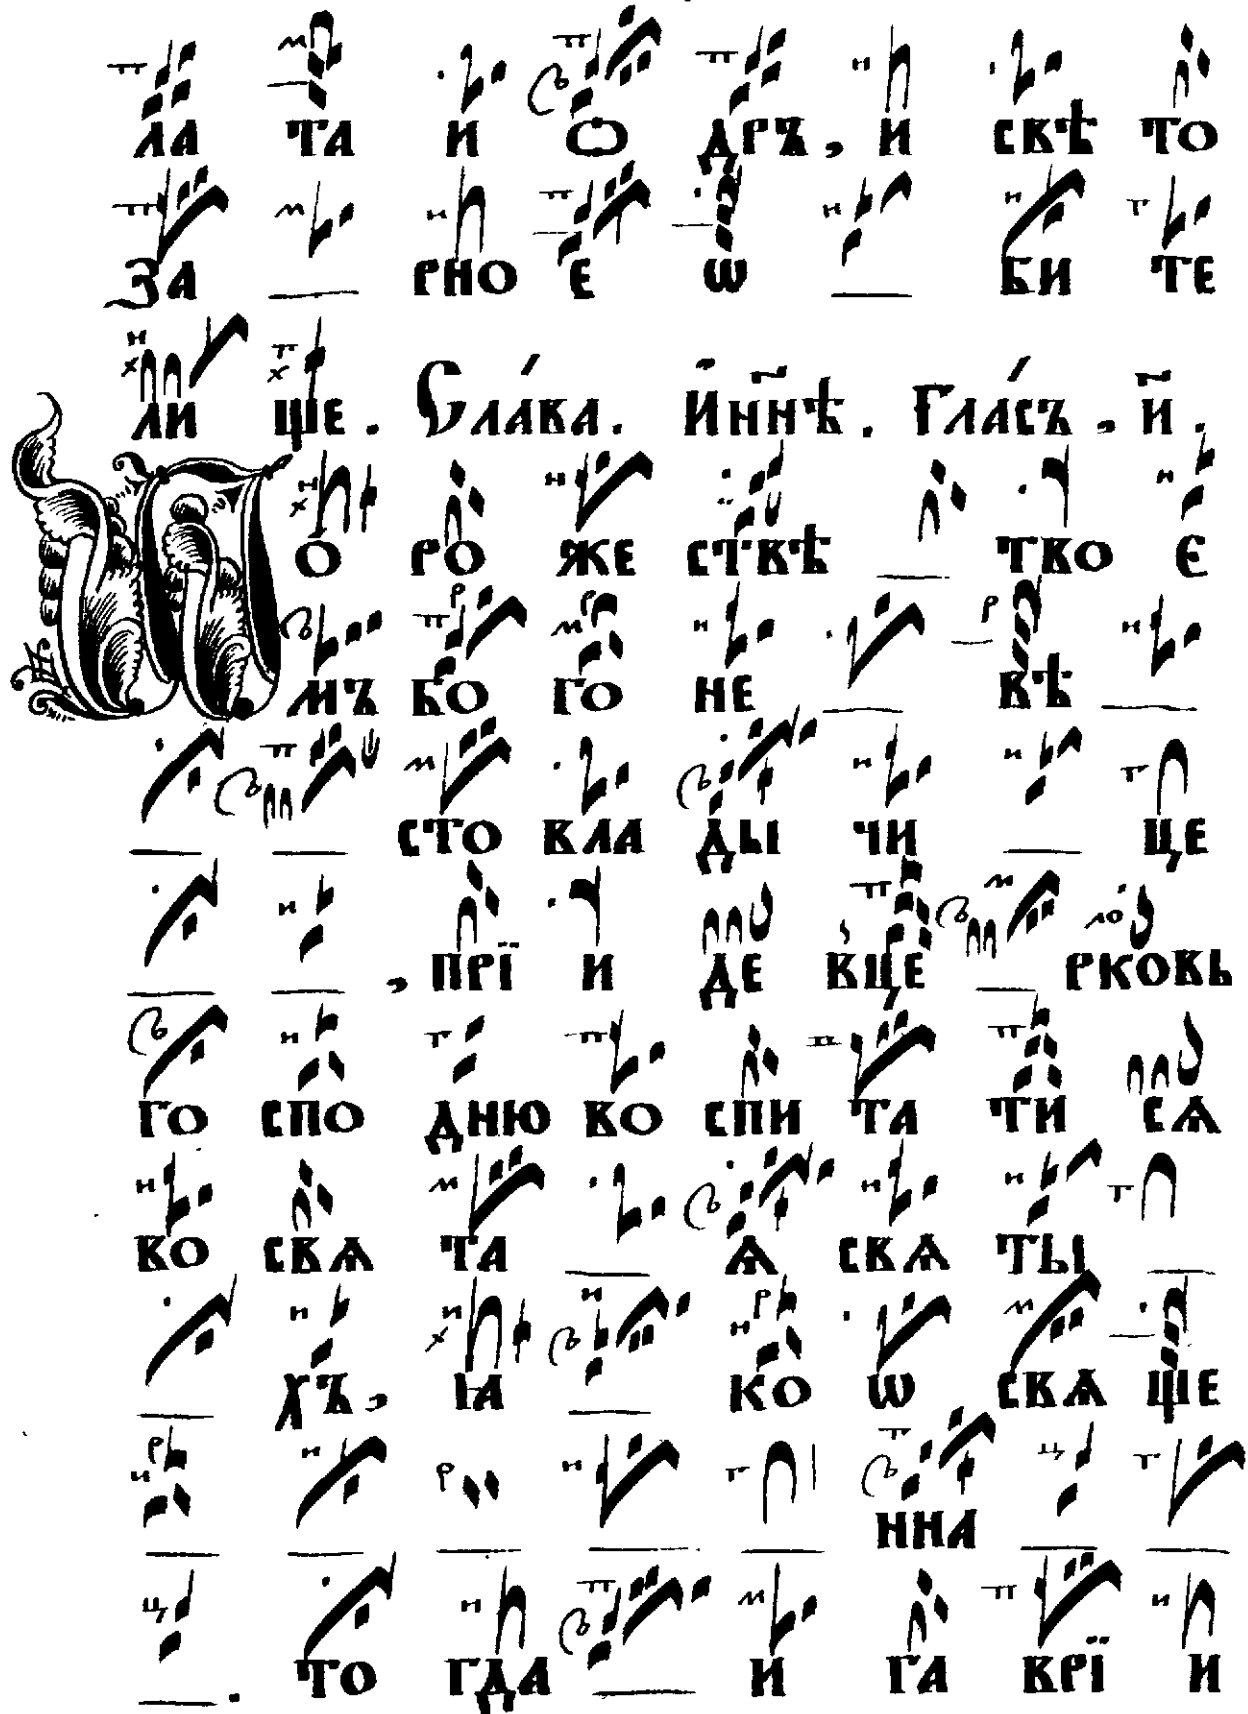 ла та и ѡ дръ, и свѣ то
за рно е ѡ би те
ли ще. Сла́ва. И҆ нн҃ѣ. Гла́съ, и҃.
Ѿ о ро же ствѣ тво є
мъ бо го не вѣ
сто вла ды чи це
, прї и де вце рковь
го спо дню во спи та ти сѧ
во свѧ та ѧ свѧ ты
хъ, ꙗ ко ѡ свѧ ще
нна
. то гда и га врї и